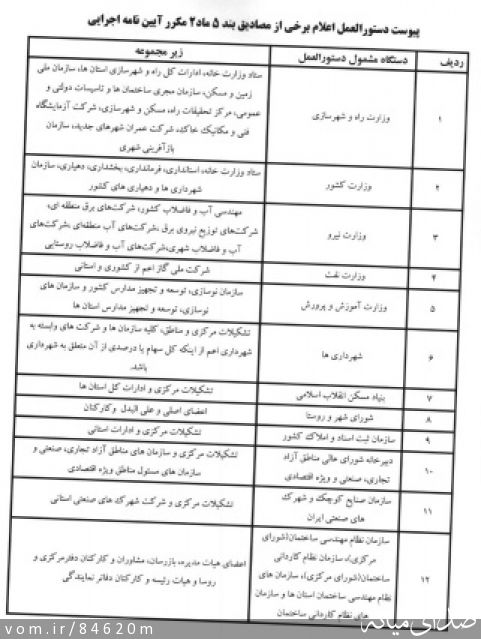 پیوست دستورالعمل اعلام برخی از مصادیق بند ۵ ماد۲ مکرر آیین نامه اجرایی
ردیف
دستگاه مشمول دستورالعمل
زیر مجموعه
۱
وزارت راه و شهرسازی
ستاد وزارت خانه، ادارات کل راه و شهرسازی استان ها، سازمان ملی
زمین و مسکن، سازمان مجری ساختمان ها و تاسیسات دولتی و
عمومی، مرکز تحقیقات راه، مسکن و شهرسازی، شرکت آزمایشگاه
فنی و مکانیک خاک، شرکت عمران شهرهای جدید، سازمان
بازآفرینی شهری
۲
وزارت کشور
ستاد وزارت خانه، استانداری، فرمانداری، بخشداری، دهیاری، سازمان
شهرداری ها و دهیاری های کشور
۳
وزارت نیرو
مهندسی آب و فاضلاب کشور، شرکت‌های برق منطقه ای،
شرکت‌های توزیع نیروی برق ،شرکت‌های آب منطقه‌ای ،شرکت‌های
آب و فاضلاب شهری،شرکت‌های آب و فاضلاب روستایی
۴
وزارت نفت
شرکت ملی گاز اعم از کشوری و استانی
۵
وزارت آموزش و پرورش
سازمان نوسازی، توسعه و تجهیز مدارس کشور و سازمان های
نوسازی، توسعه و تجهیز مدارس استان ها
۶
شهرداری ها
تشکیلات مرکزی و مناطق، کلیه سازمان ها و شرکت های وابسته به
شهرداری اعم از اینکه کل سهام یا درصدی از آن متعلق به شهرداری
باشد.
۷
بنیاد مسکن انقلاب اسلامی
تشکیلات مرکزی و ادارات کل استان ها
۸
شورای شهر و روستا
اعضای اصلی و علی البدل وکارکنان
۹
سازمان ثبت اسناد و املاک کشور
تشکیلات مرکزی و ادارات استانی
۱۰
دبیرخانه شورای عالی مناطق آزاد
تجاری، صنعتی و ویژه اقتصادی
تشکیلات مرکزی و سازمان های مناطق آزاد تجاری، صنعتی و
سازمان های مسئول مناطق ویژه اقتصادی
۱۱
سازمان صنایع کوچک و شهرک
های صنعتی ایران
تشکیلات مرکزی و شرکت شهرک های صنعتی استانی
۱۲
سازمان نظام مهندسی ساختمان(شورای
مرکزی)، سازمان نظام کاردانی
ساختمان(شورای مرکزی)، سازمان های
نظام مهندسی ساختمان استان ها و سازمان
های نظام کاردانی ساختمان
اعضای هیات مدیره، بازرسان، مشاوران و کارکنان دفترمرکزی و
روسا و هیات رئیسه و کارکنان دفاتر نمایندگی
صدای میانه
vom.ir/84620m